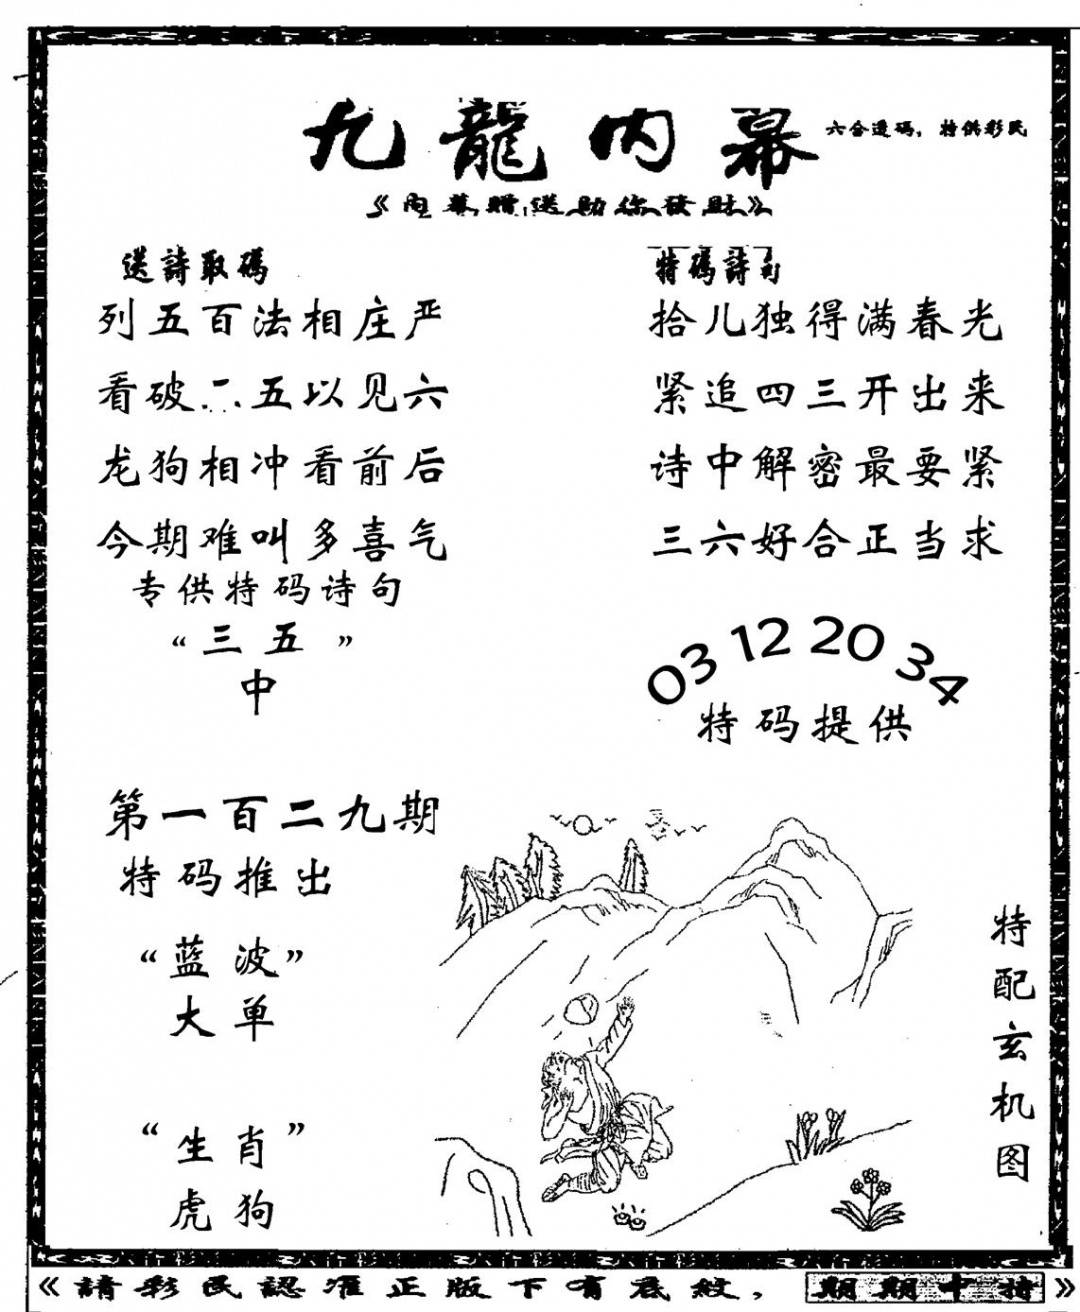 九龍内幕
六合透碼，特供彩民
《内幕赠送助你發財》
送詩取碼
列五百法相庄严
看破二五以见六
龙狗相冲看前后
今期难叫多喜气
专供特码诗句
“三五”
中
特碼詩句
拾儿独得满春光
紧追四三开出来
诗中解密最要紧
三六好合正当求
03 12 20 34
特码提供
第一百二九期
特码推出
“蓝波”
大单
“生肖”
虎狗
特配玄机图
《請彩民認准正版下有底紋，期期中特》